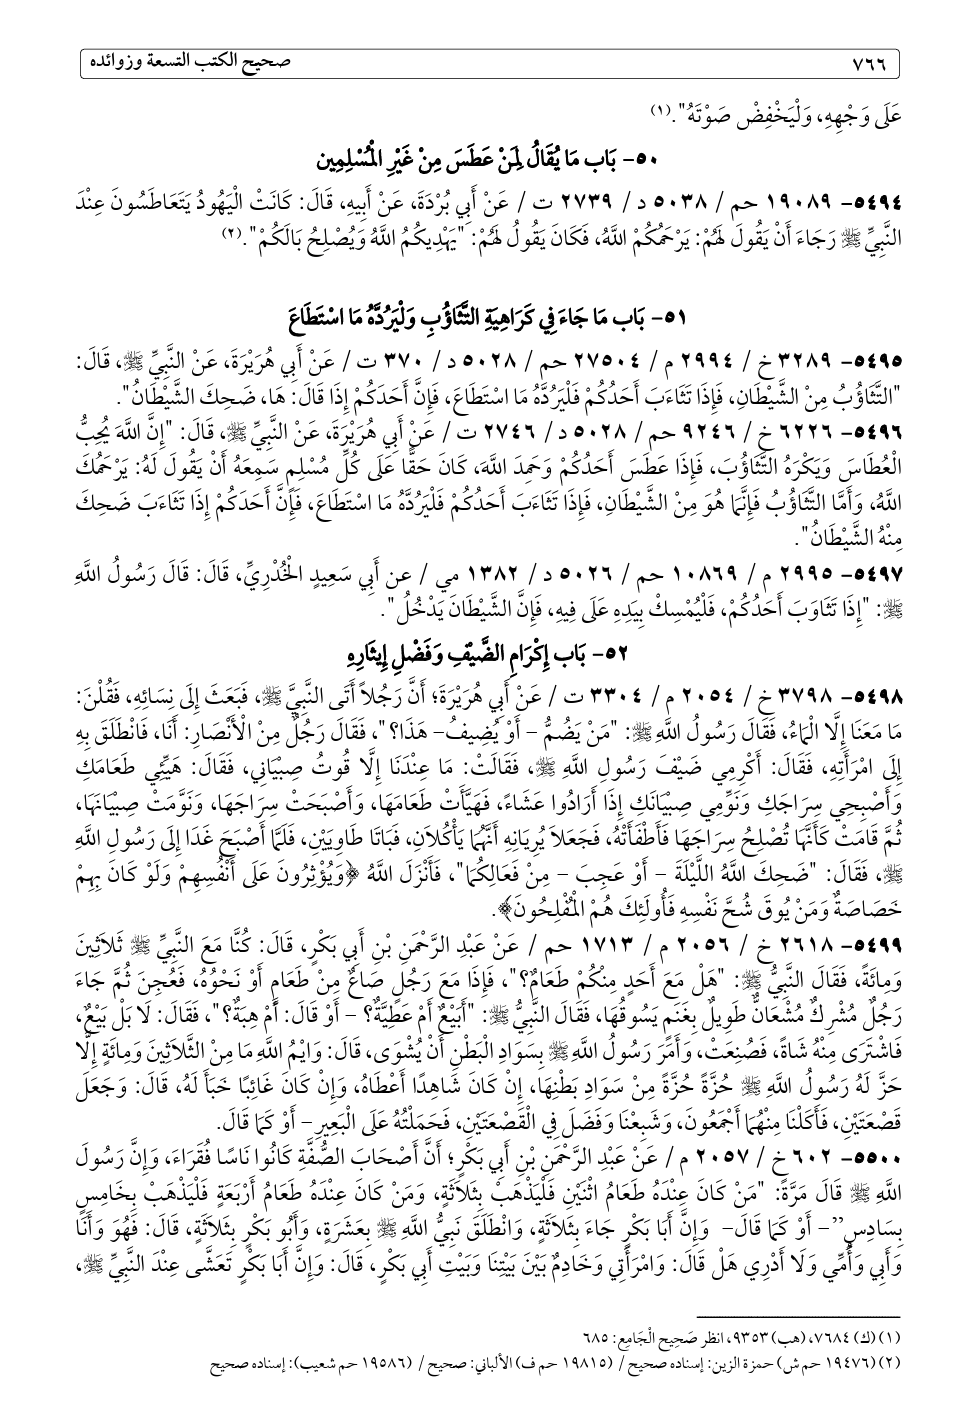 ٧٦٦
صحيح الكتب التسعة وزوائده
عَلَى وَجْهِهِ، وَلْيَخْفِضْ صَوْتَهُ".(١)
٥٠- بَاب مَا يُقَالُ لِمَنْ عَطَسَ مِنْ غَيْرِ الْمُسْلِمِين
٥٤٩٤- ١٩٠٨٩ حم / ٥٠٣٨ د / ٢٧٣٩ ت / عَنْ أَبِي بُرْدَةَ، عَنْ أَبِيهِ، قَالَ: كَانَتْ الْيَهُودُ يَتَعَاطَسُونَ عِنْدَ
النَّبِيِّ ﷺ رَجَاءَ أَنْ يَقُولَ لَهُمْ: يَرْحَمُكُمْ اللَّهُ، فَكَانَ يَقُولُ لَهُمْ: "يَهْدِيكُمُ اللَّهُ وَيُصْلِحُ بَالَكُمْ".(٢)
٥١- بَاب مَا جَاءَ فِي كَرَاهِيَةِ التَّثَاؤُبِ وَلْيَرُدَّهُ مَا اسْتَطَاعَ
٥٤٩٥- ٣٢٨٩ خ / ٢٩٩٤ م / ٢٧٥٠٤ حم / ٥٠٢٨ د / ٣٧٠ ت / عَنْ أَبِي هُرَيْرَةَ، عَنْ النَّبِيِّ ﷺ، قَالَ:
"التَّثَاؤُبُ مِنْ الشَّيْطَانِ، فَإِذَا تَثَاءَبَ أَحَدُكُمْ فَلْيَرُدَّهُ مَا اسْتَطَاعَ، فَإِنَّ أَحَدَكُمْ إِذَا قَالَ: هَا، ضَحِكَ الشَّيْطَانُ".
٥٤٩٦- ٦٢٢٦ خ / ٩٢٤٦ حم / ٥٠٢٨ د / ٢٧٤٦ ت / عَنْ أَبِي هُرَيْرَةَ، عَنْ النَّبِيِّ ﷺ، قَالَ: "إِنَّ اللَّهَ يُحِبُّ
الْعُطَاسَ وَيَكْرَهُ التَّثَاؤُبَ، فَإِذَا عَطَسَ أَحَدُكُمْ وَحَمِدَ اللَّهَ، كَانَ حَقًّا عَلَى كُلِّ مُسْلِمٍ سَمِعَهُ أَنْ يَقُولَ لَهُ: يَرْحَمُكَ
اللَّهُ، وَأَمَّا التَّثَاؤُبُ فَإِنَّمَا هُوَ مِنْ الشَّيْطَانِ، فَإِذَا تَثَاءَبَ أَحَدُكُمْ فَلْيَرُدَّهُ مَا اسْتَطَاعَ، فَإِنَّ أَحَدَكُمْ إِذَا تَثَاءَبَ ضَحِكَ
مِنْهُ الشَّيْطَانُ".
٥٤٩٧- ٢٩٩٥ م / ١٠٨٦٩ حم / ٥٠٢٦ د / ١٣٨٢ مي / عن أَبِي سَعِيدٍ الْخُدْرِيِّ، قَالَ: قَالَ رَسُولُ اللَّهِ
ﷺ: "إِذَا تَثَاوَبَ أَحَدُكُمْ، فَلْيُمْسِكْ بِيَدِهِ عَلَى فِيهِ، فَإِنَّ الشَّيْطَانَ يَدْخُلُ".
٥٢- بَاب إِكْرَامِ الضَّيْفِ وَفَضْلِ إِيثَارِهِ
٥٤٩٨- ٣٧٩٨ خ / ٢٠٥٤ م / ٣٣٠٤ ت / عَنْ أَبِي هُرَيْرَةَ؛ أَنَّ رَجُلاً أَتَى النَّبِيَّ ﷺ، فَبَعَثَ إِلَى نِسَائِهِ، فَقُلْنَ:
مَا مَعَنَا إِلَّا الْمَاءُ، فَقَالَ رَسُولُ اللَّهِ ﷺ: "مَنْ يَضُمُّ – أَوْ يُضِيفُ– هَذَا؟"، فَقَالَ رَجُلٌ مِنْ الْأَنْصَارِ: أَنَا، فَانْطَلَقَ بِهِ
إِلَى امْرَأَتِهِ، فَقَالَ: أَكْرِمِي ضَيْفَ رَسُولِ اللَّهِ ﷺ، فَقَالَتْ: مَا عِنْدَنَا إِلَّا قُوتُ صِبْيَانِي، فَقَالَ: هَيِّئِي طَعَامَكِ
وَأَصْبِحِي سِرَاجَكِ وَنَوِّمِي صِبْيَانَكِ إِذَا أَرَادُوا عَشَاءً، فَهَيَّأَتْ طَعَامَهَا، وَأَصْبَحَتْ سِرَاجَهَا، وَنَوَّمَتْ صِبْيَانَهَا،
ثُمَّ قَامَتْ كَأَنَّهَا تُصْلِحُ سِرَاجَهَا فَأَطْفَأَتْهُ، فَجَعَلاَ يُرِيَانِهِ أَنَّهُمَا يَأْكُلاَنِ، فَبَاتَا طَاوِيَيْنِ، فَلَمَّا أَصْبَحَ غَدَا إِلَى رَسُولِ اللَّهِ
ﷺ، فَقَالَ: "ضَحِكَ اللَّهُ اللَّيْلَةَ – أَوْ عَجِبَ – مِنْ فَعَالِكُمَا"، فَأَنْزَلَ اللَّهُ ﴿وَيُؤْثِرُونَ عَلَى أَنْفُسِهِمْ وَلَوْ كَانَ بِهِمْ
خَصَاصَةٌ وَمَنْ يُوقَ شُحَّ نَفْسِهِ فَأُولَئِكَ هُمْ الْمُفْلِحُونَ﴾.
٥٤٩٩- ٢٦١٨ خ / ٢٠٥٦ م / ١٧١٣ حم / عَنْ عَبْدِ الرَّحْمَنِ بْنِ أَبِي بَكْرٍ، قَالَ: كُنَّا مَعَ النَّبِيِّ ﷺ ثَلاَثِينَ
وَمِائَةً، فَقَالَ النَّبِيُّ ﷺ: "هَلْ مَعَ أَحَدٍ مِنْكُمْ طَعَامٌ؟"، فَإِذَا مَعَ رَجُلٍ صَاعٌ مِنْ طَعَامٍ أَوْ نَحْوُهُ، فَعُجِنَ ثُمَّ جَاءَ
رَجُلٌ مُشْرِكٌ مُشْعَانٌّ طَوِيلٌ بِغَنَمٍ يَسُوقُهَا، فَقَالَ النَّبِيُّ ﷺ: "أَبَيْعٌ أَمْ عَطِيَّةٌ؟ – أَوْ قَالَ: أَمْ هِبَةٌ؟"، فَقَالَ: لَا بَلْ بَيْعٌ،
فَاشْتَرَى مِنْهُ شَاةً، فَصُنِعَتْ، وَأَمَرَ رَسُولُ اللَّهِ ﷺ بِسَوَادِ الْبَطْنِ أَنْ يُشْوَى، قَالَ: وَايْمُ اللَّهِ مَا مِنْ الثَّلاَثِينَ وَمِائَةٍ إِلَّا
حَزَّ لَهُ رَسُولُ اللَّهِ ﷺ حُزَّةً حُزَّةً مِنْ سَوَادِ بَطْنِهَا، إِنْ كَانَ شَاهِدًا أَعْطَاهُ، وَإِنْ كَانَ غَائِبًا خَبَأَ لَهُ، قَالَ: وَجَعَلَ
قَصْعَتَيْنِ، فَأَكَلْنَا مِنْهُمَا أَجْمَعُونَ، وَشَبِعْنَا وَفَضَلَ فِي الْقَصْعَتَيْنِ، فَحَمَلْتُهُ عَلَى الْبَعِيرِ– أَوْ كَمَا قَالَ.
٥٥٠٠- ٦٠٢ خ / ٢٠٥٧ م / عَنْ عَبْدِ الرَّحْمَنِ بْنِ أَبِي بَكْرٍ؛ أَنَّ أَصْحَابَ الصُّفَّةِ كَانُوا نَاسًا فُقَرَاءَ، وَإِنَّ رَسُولَ
اللَّهِ ﷺ قَالَ مَرَّةً: "مَنْ كَانَ عِنْدَهُ طَعَامُ اثْنَيْنِ فَلْيَذْهَبْ بِثَلاَثَةٍ، وَمَنْ كَانَ عِنْدَهُ طَعَامُ أَرْبَعَةٍ فَلْيَذْهَبْ بِخَامِسٍ
بِسَادِسٍ”– أَوْ كَمَا قَالَ– وَإِنَّ أَبَا بَكْرٍ جَاءَ بِثَلاَثَةٍ، وَانْطَلَقَ نَبِيُّ اللَّهِ ﷺ بِعَشَرَةٍ، وَأَبُو بَكْرٍ بِثَلاَثَةٍ، قَالَ: فَهُوَ وَأَنَا
وَأَبِي وَأُمِّي وَلَا أَدْرِي هَلْ قَالَ: وَامْرَأَتِي وَخَادِمٌ بَيْنَ بَيْتِنَا وَبَيْتِ أَبِي بَكْرٍ، قَالَ: وَإِنَّ أَبَا بَكْرٍ تَعَشَّى عِنْدَ النَّبِيِّ ﷺ،
(١) (ك) ٧٦٨٤، (هب) ٩٣٥٣، انظر صَحِيح الْجَامِع: ٦٨٥
(٢) (١٩٤٧٦ حم ش) حمزة الزين: إسناده صحيح / (١٩٨١٥ حم ف) الألباني: صحيح / (١٩٥٨٦ حم شعيب): إسناده صحيح